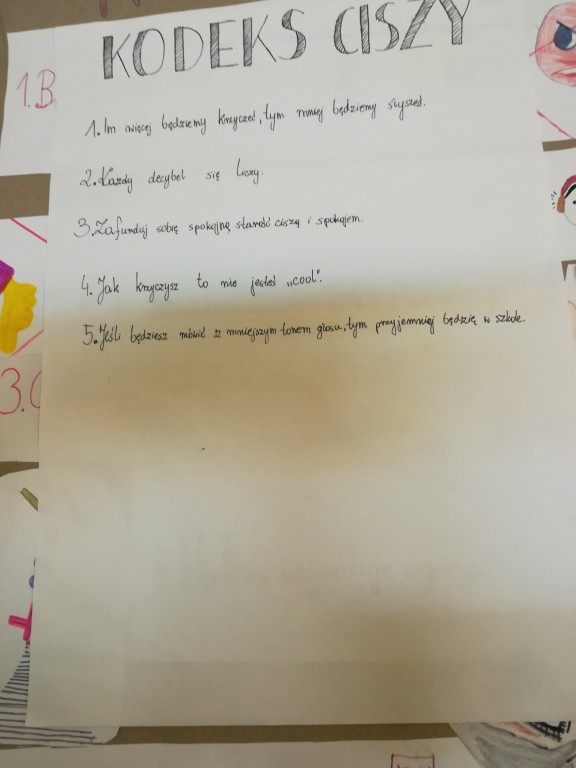 KODEKS CISZY
1.B
1. Im więcej będziemy krzyczeć, tym mniej będziemy słyszeć.
2. Każdy decybel się liczy.
3. Zafunduj sobię spokojną starość ciszą i spokojem.
4. Jak krzyczysz to nie jesteś „cool”.
5. Jeśli będziesz mówić z mniejszym tonem głosu, tym przyjemniej będzię w szkole.
3.C